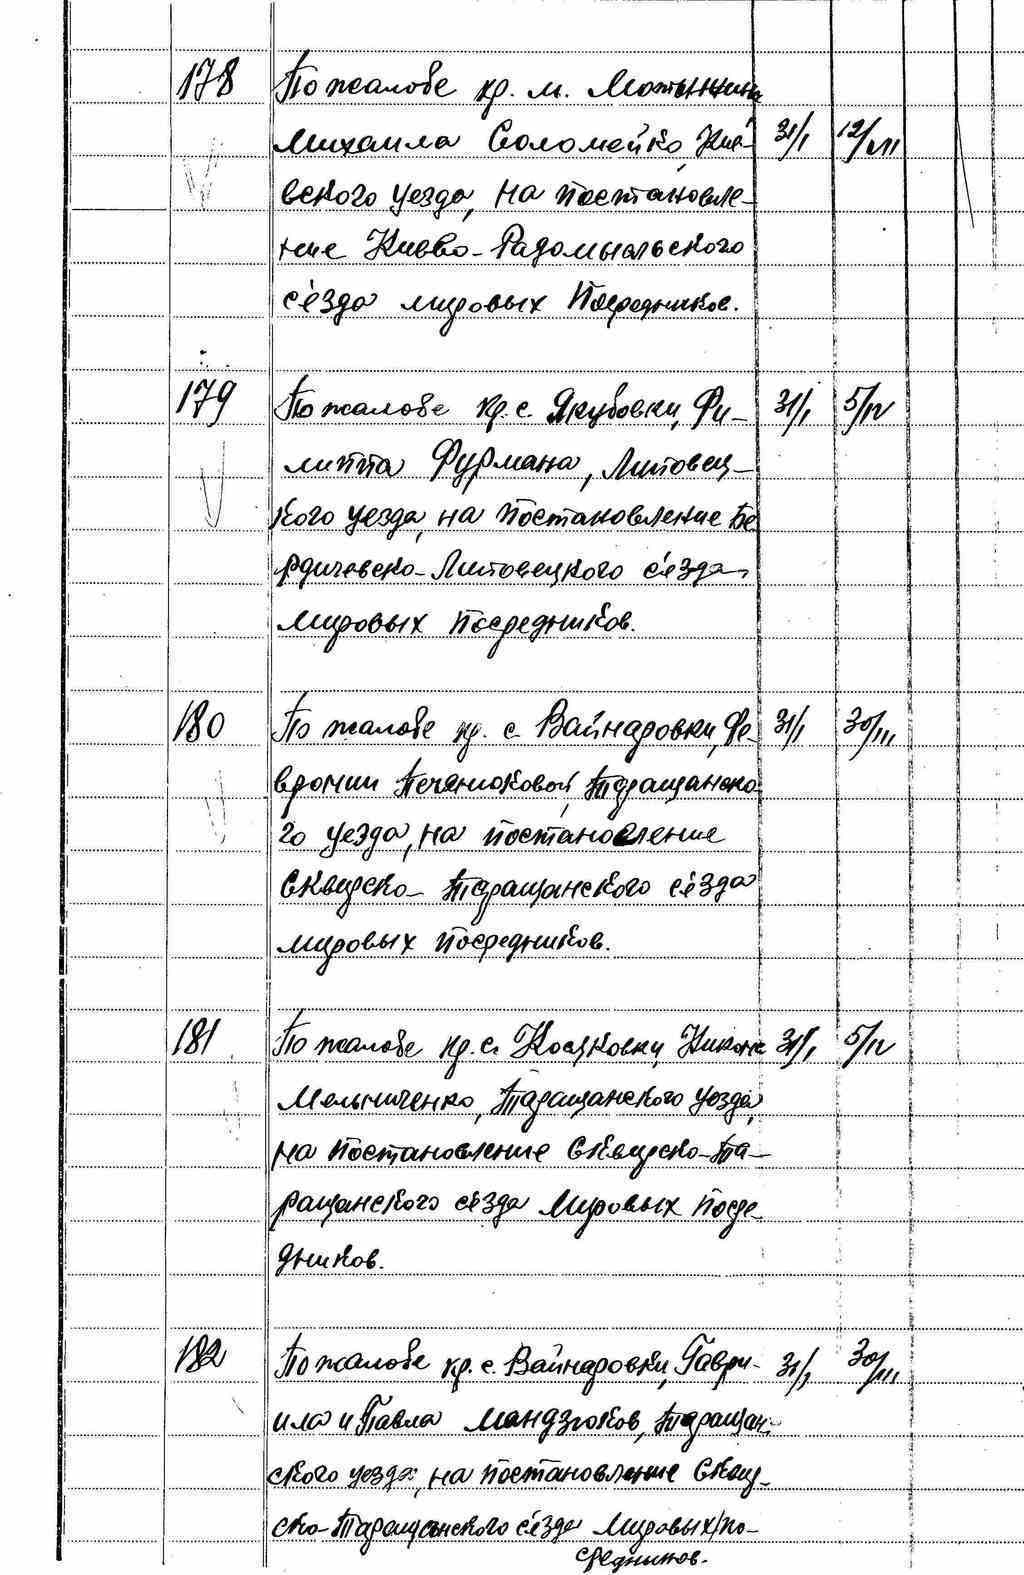 178 По жалобе кр. м. Мотыжина
Михаила Соломейко, Кие- 31/I 12/VII
вского уезда, на постановле-
ние Киево-Радомысльского
съезда мировых Посредников.
179 По жалобе кр. с. Якубовки, Фи- 31/I 5/IV
липпа Фурмана, Липовец-
кого уезда, на постановление Бе
рдичевско-Липовецкого съезда
Мировых Посредников.
180 По жалобе кр. с. Войнаровки, Фе- 31/I 30/III
вронии Печенюковой, Таращанско-
го уезда, на постановление
Сквирско-Таращанского съезда
мировых посредников.
181 По жалобе кр. с. Косяковки, Никона 31/I 5/IV
Мельниченко, Таращанского уезда,
на постановление Сквирско-Та-
ращанского съезда Мировых Посре-
дников.
182 По жалобе кр. с. Войнаровки, Гаври- 31/I 30/III
ила и Павла Мандзюков, Таращан-
ского уезда, на постановление Сквир-
ско-Таращанского съезда Мировых по-
средников.